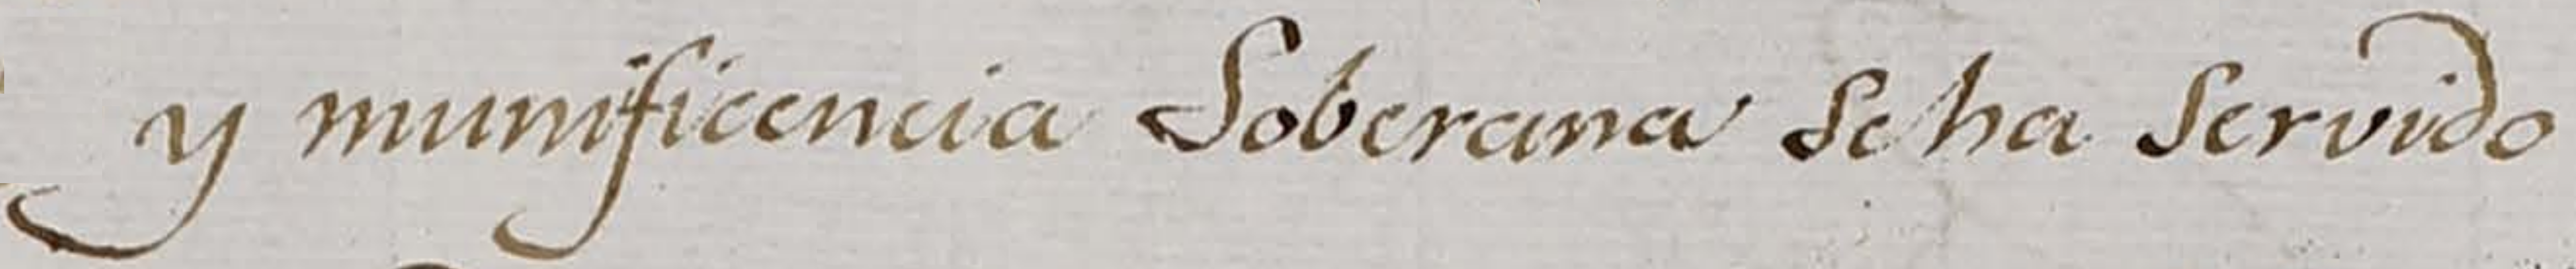 y munificencia Soberana Se ha Servido